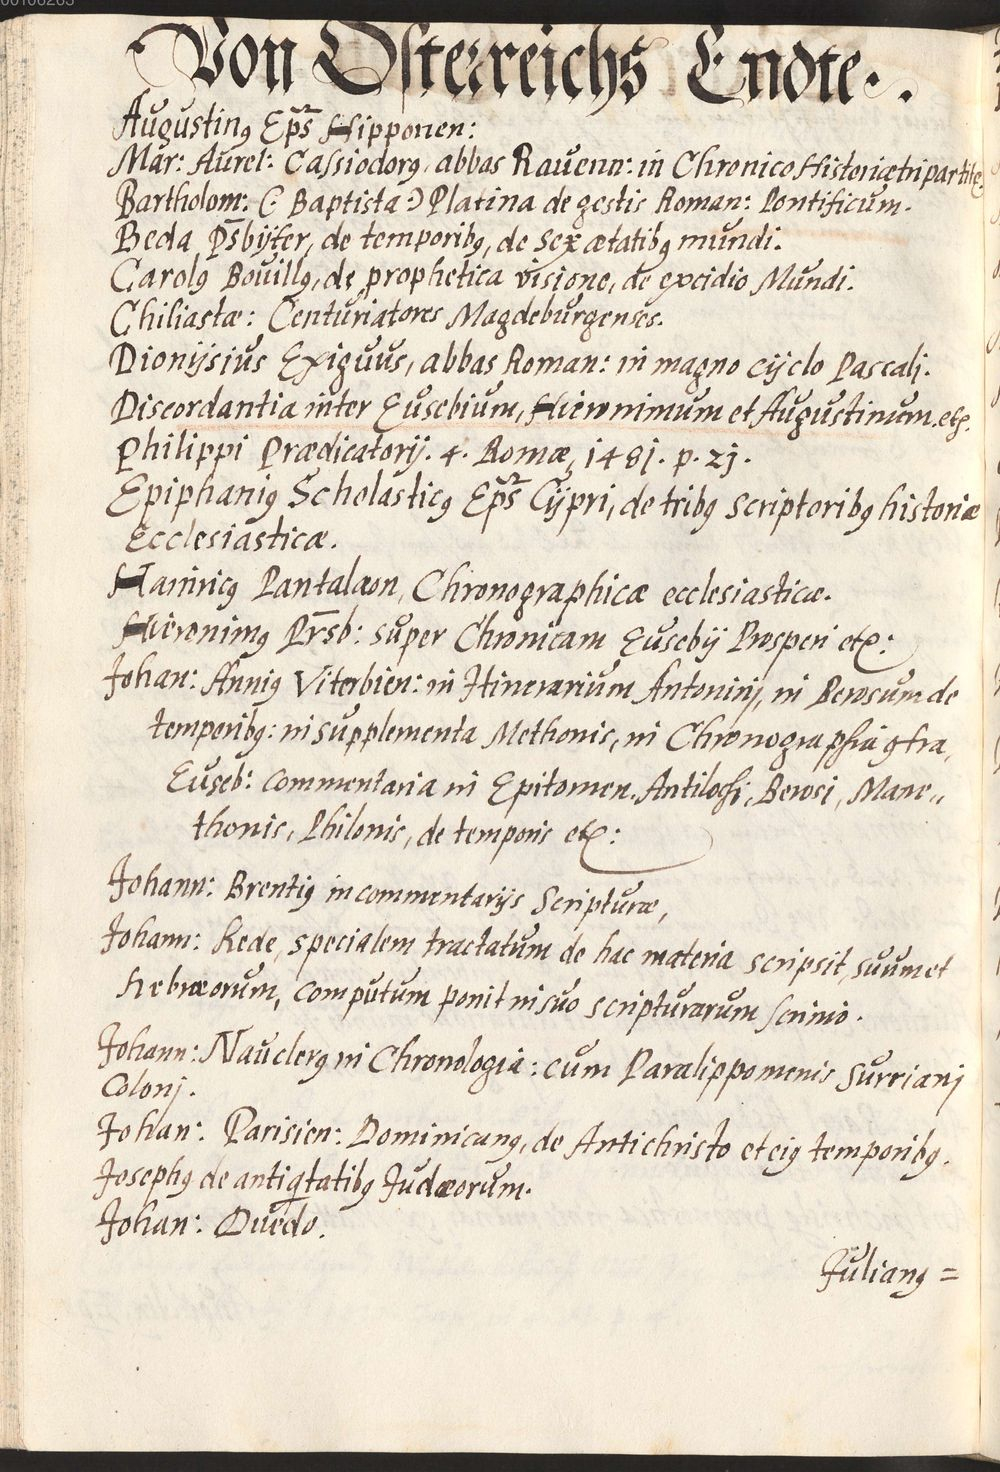 00106263
Von Osterreichs Endte.
Augustinꝯ Ep̃s Hipponen:
Mar: Aurel: Cassiodorꝯ, abbas Rauenn: in Chronico Historiæ tripartitæ.
Bartholom: (: Baptista :) Platina de gestis Roman: Pontificum.
Beda P̄sbÿter, de temporibꝯ, de sex ætatibꝯ mundi.
Carolꝯ Bouillꝯ, de prophetica visione, de excidio Mundi.
Chiliastæ: Centuriatores Magdeburgenses.
Dionÿsius Exiguus, abbas Roman: in magno cÿclo Pascalj.
Discordantia inter Eusebium, Hieronimum et Augustinum. etc.
Philippi Prædicatorij. 4. Romæ, 1481. p. 21.
Epiphaniꝯ Scholasticꝯ Ep̃s Cÿpri, de tribꝯ scriptoribꝯ historiæ
Ecclesiasticæ.
Hainricꝯ Pantalæon, Chronographicæ ecclesiasticæ.
Hieronimꝯ Pr̄sb: super Chronicam Eusebÿ Prosperi etc:
Johan: Anniꝯ Viterbien: in Itinerarium Antoninj, in Berosum de
temporibꝯ: in supplementa Methonis, in Chronographiā
Euseb: commentaria in Epitomen. Antilochi, Berosi, Mane„
thonis, Philonis, de temporis etc:
Johann: Brentiꝯ in commentarijs Scripturæ,
Johann: Rede, specialem tractatum de hac materia scripsit, suum et
Hebræorum, computum ponit in suo scripturarum scrinio.
Johann: Nauclerꝯ in Chronologia: cum Paralippomenis Surrianj
Colonj.
Johan: Parisien: Dominicanꝯ, de Antichristo et eiꝯ temporibꝯ.
Josephꝯ de antiqtatibꝯ Judæorum.
Johan: Ouedo.
Julianꝯ =